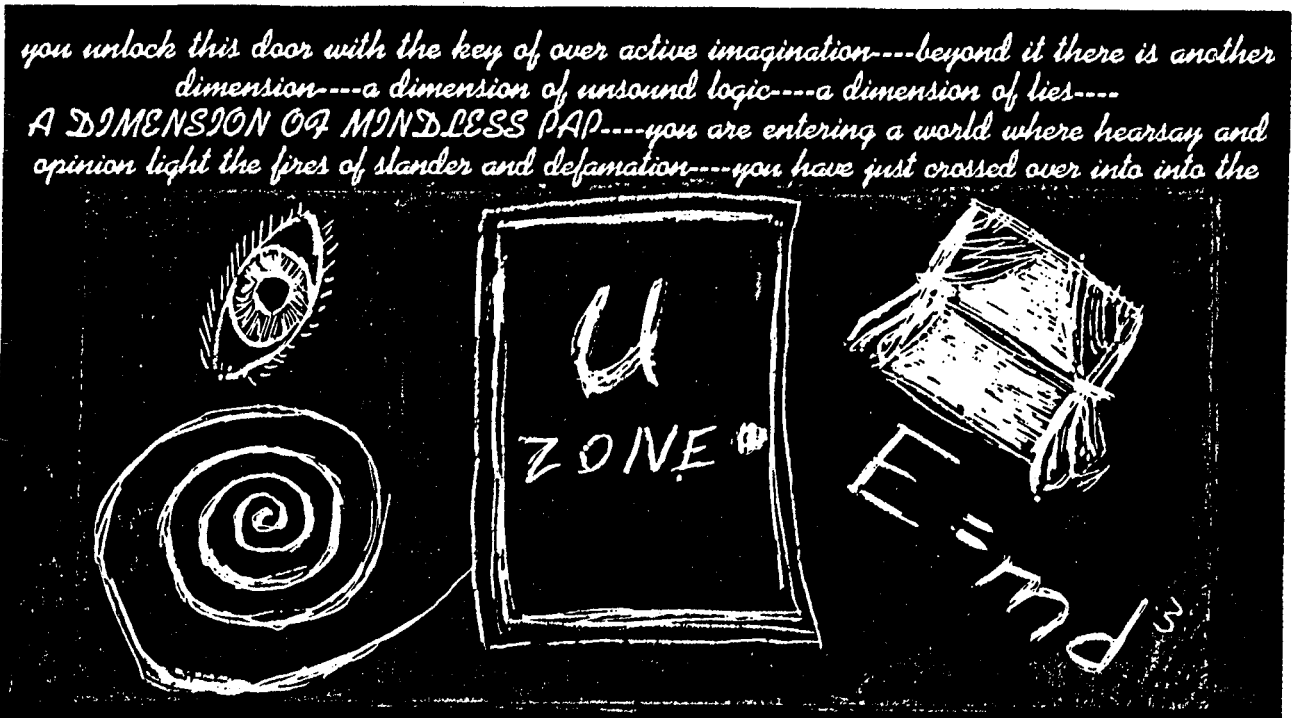 you unlock this door with the key of over active imagination----beyond it there is another
dimension----a dimension of unsound logic----a dimension of lies----
A DIMENSION OF MINDLESS PAP----you are entering a world where hearsay and
opinion light the fires of slander and defamation----you have just crossed over into into the
U
ZONE
E=md